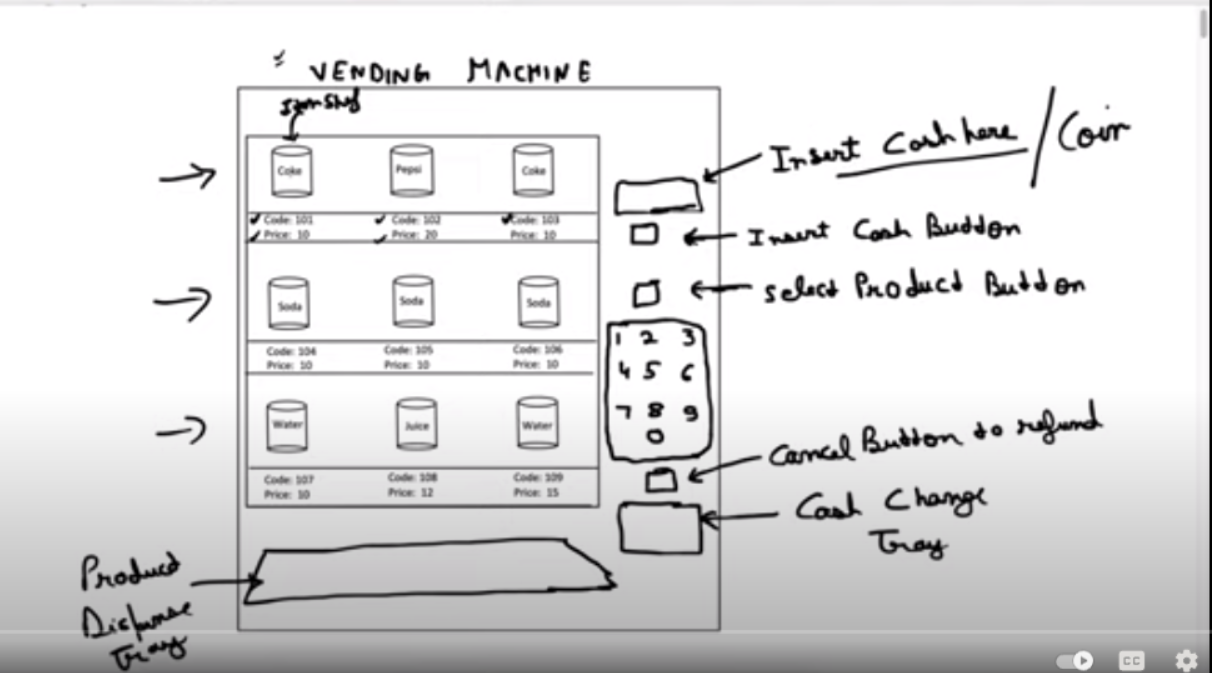 VENDING MACHINE
Coke Pepsi Coke
Code: 101 Code: 102 Code: 103
Price: 10 Price: 20 Price: 10
Soda Soda Soda
Code: 104 Code: 105 Code: 106
Price: 10 Price: 10 Price: 10
Water Juice Water
Code: 107 Code: 108 Code: 109
Price: 10 Price: 12 Price: 15
Insert Cash here / Coin
Insert Cash Button
Select Product Button
1 2 3
4 5 6
7 8 9
0
Cancel Button to refund
Cash Change
Tray
Product
Dispense
Tray
CC